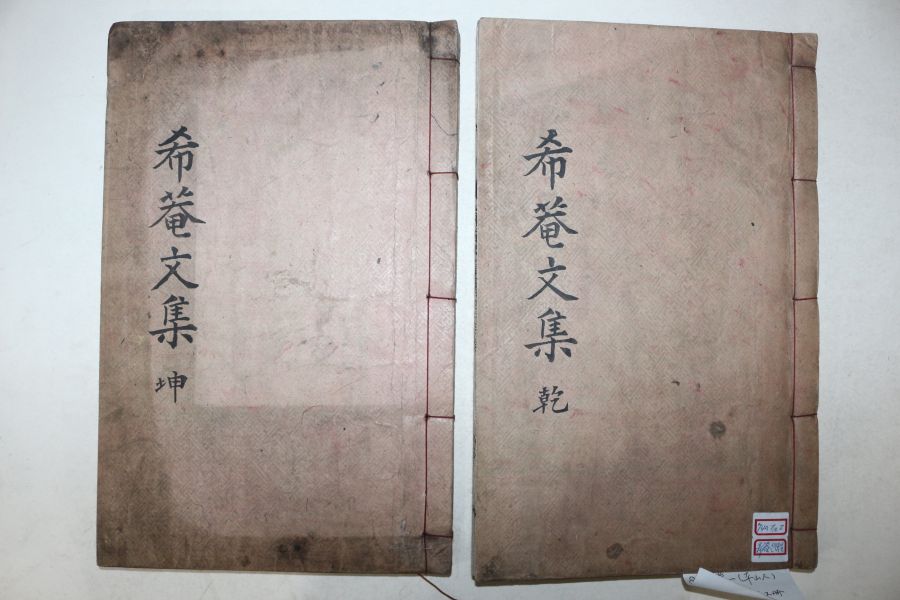 希菴文集 乾
希菴文集 坤